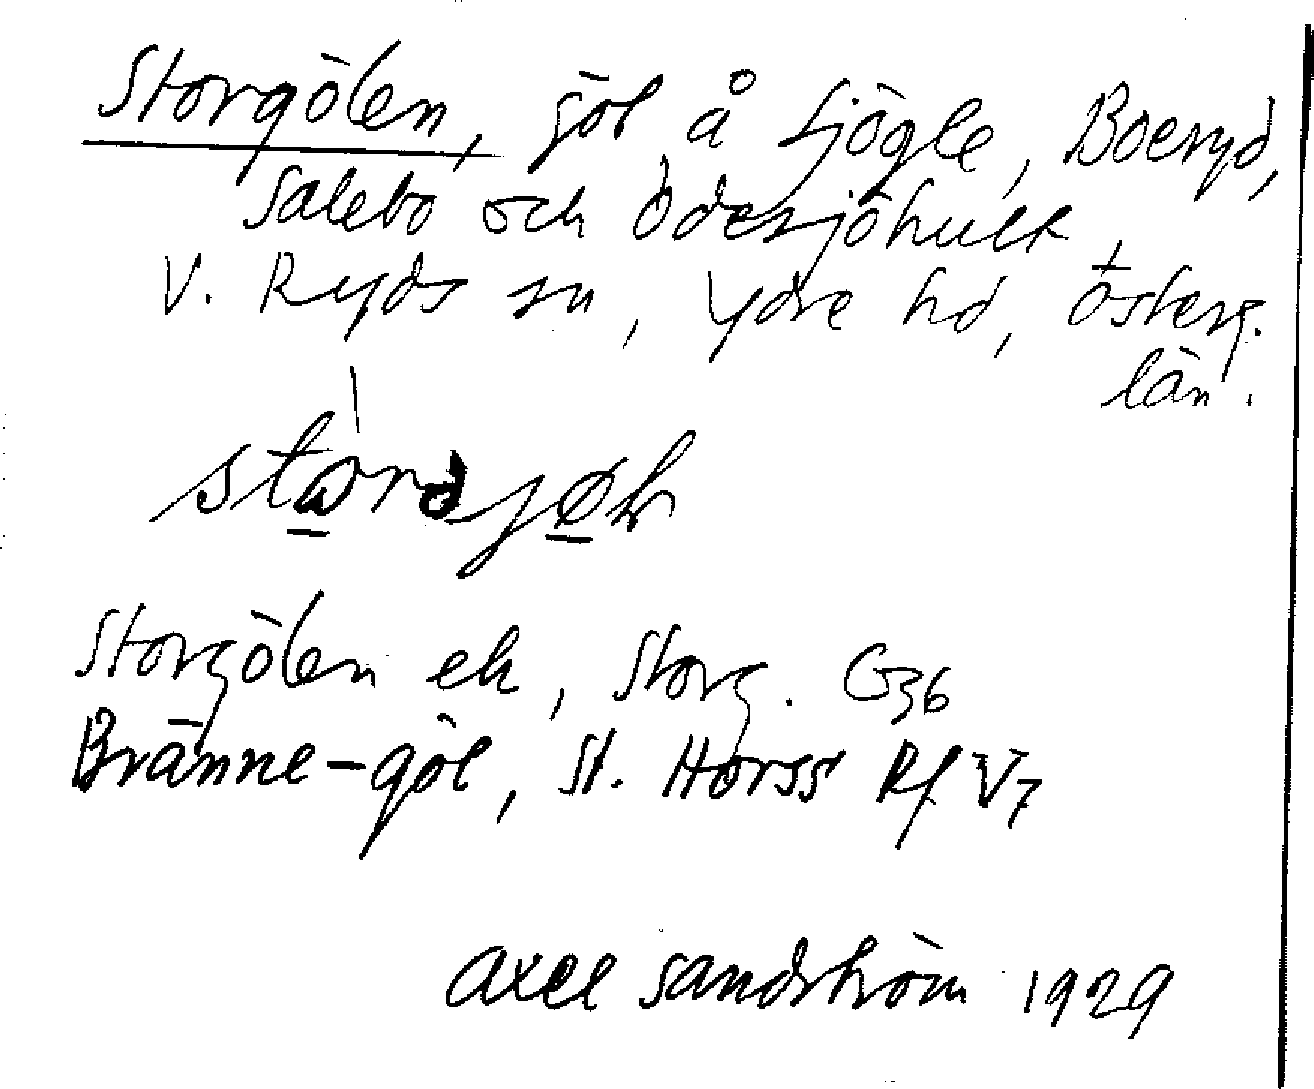 Storgölen, göl å Sjögle, Boeryd,
Salebo och Ödesjöhult
V. Ryds sn, Ydre hd, Österg.
län.
Storgölen ek, Storg. G36
Bränne-göl, St. Horss Rf V7
Axel Sandström 1929